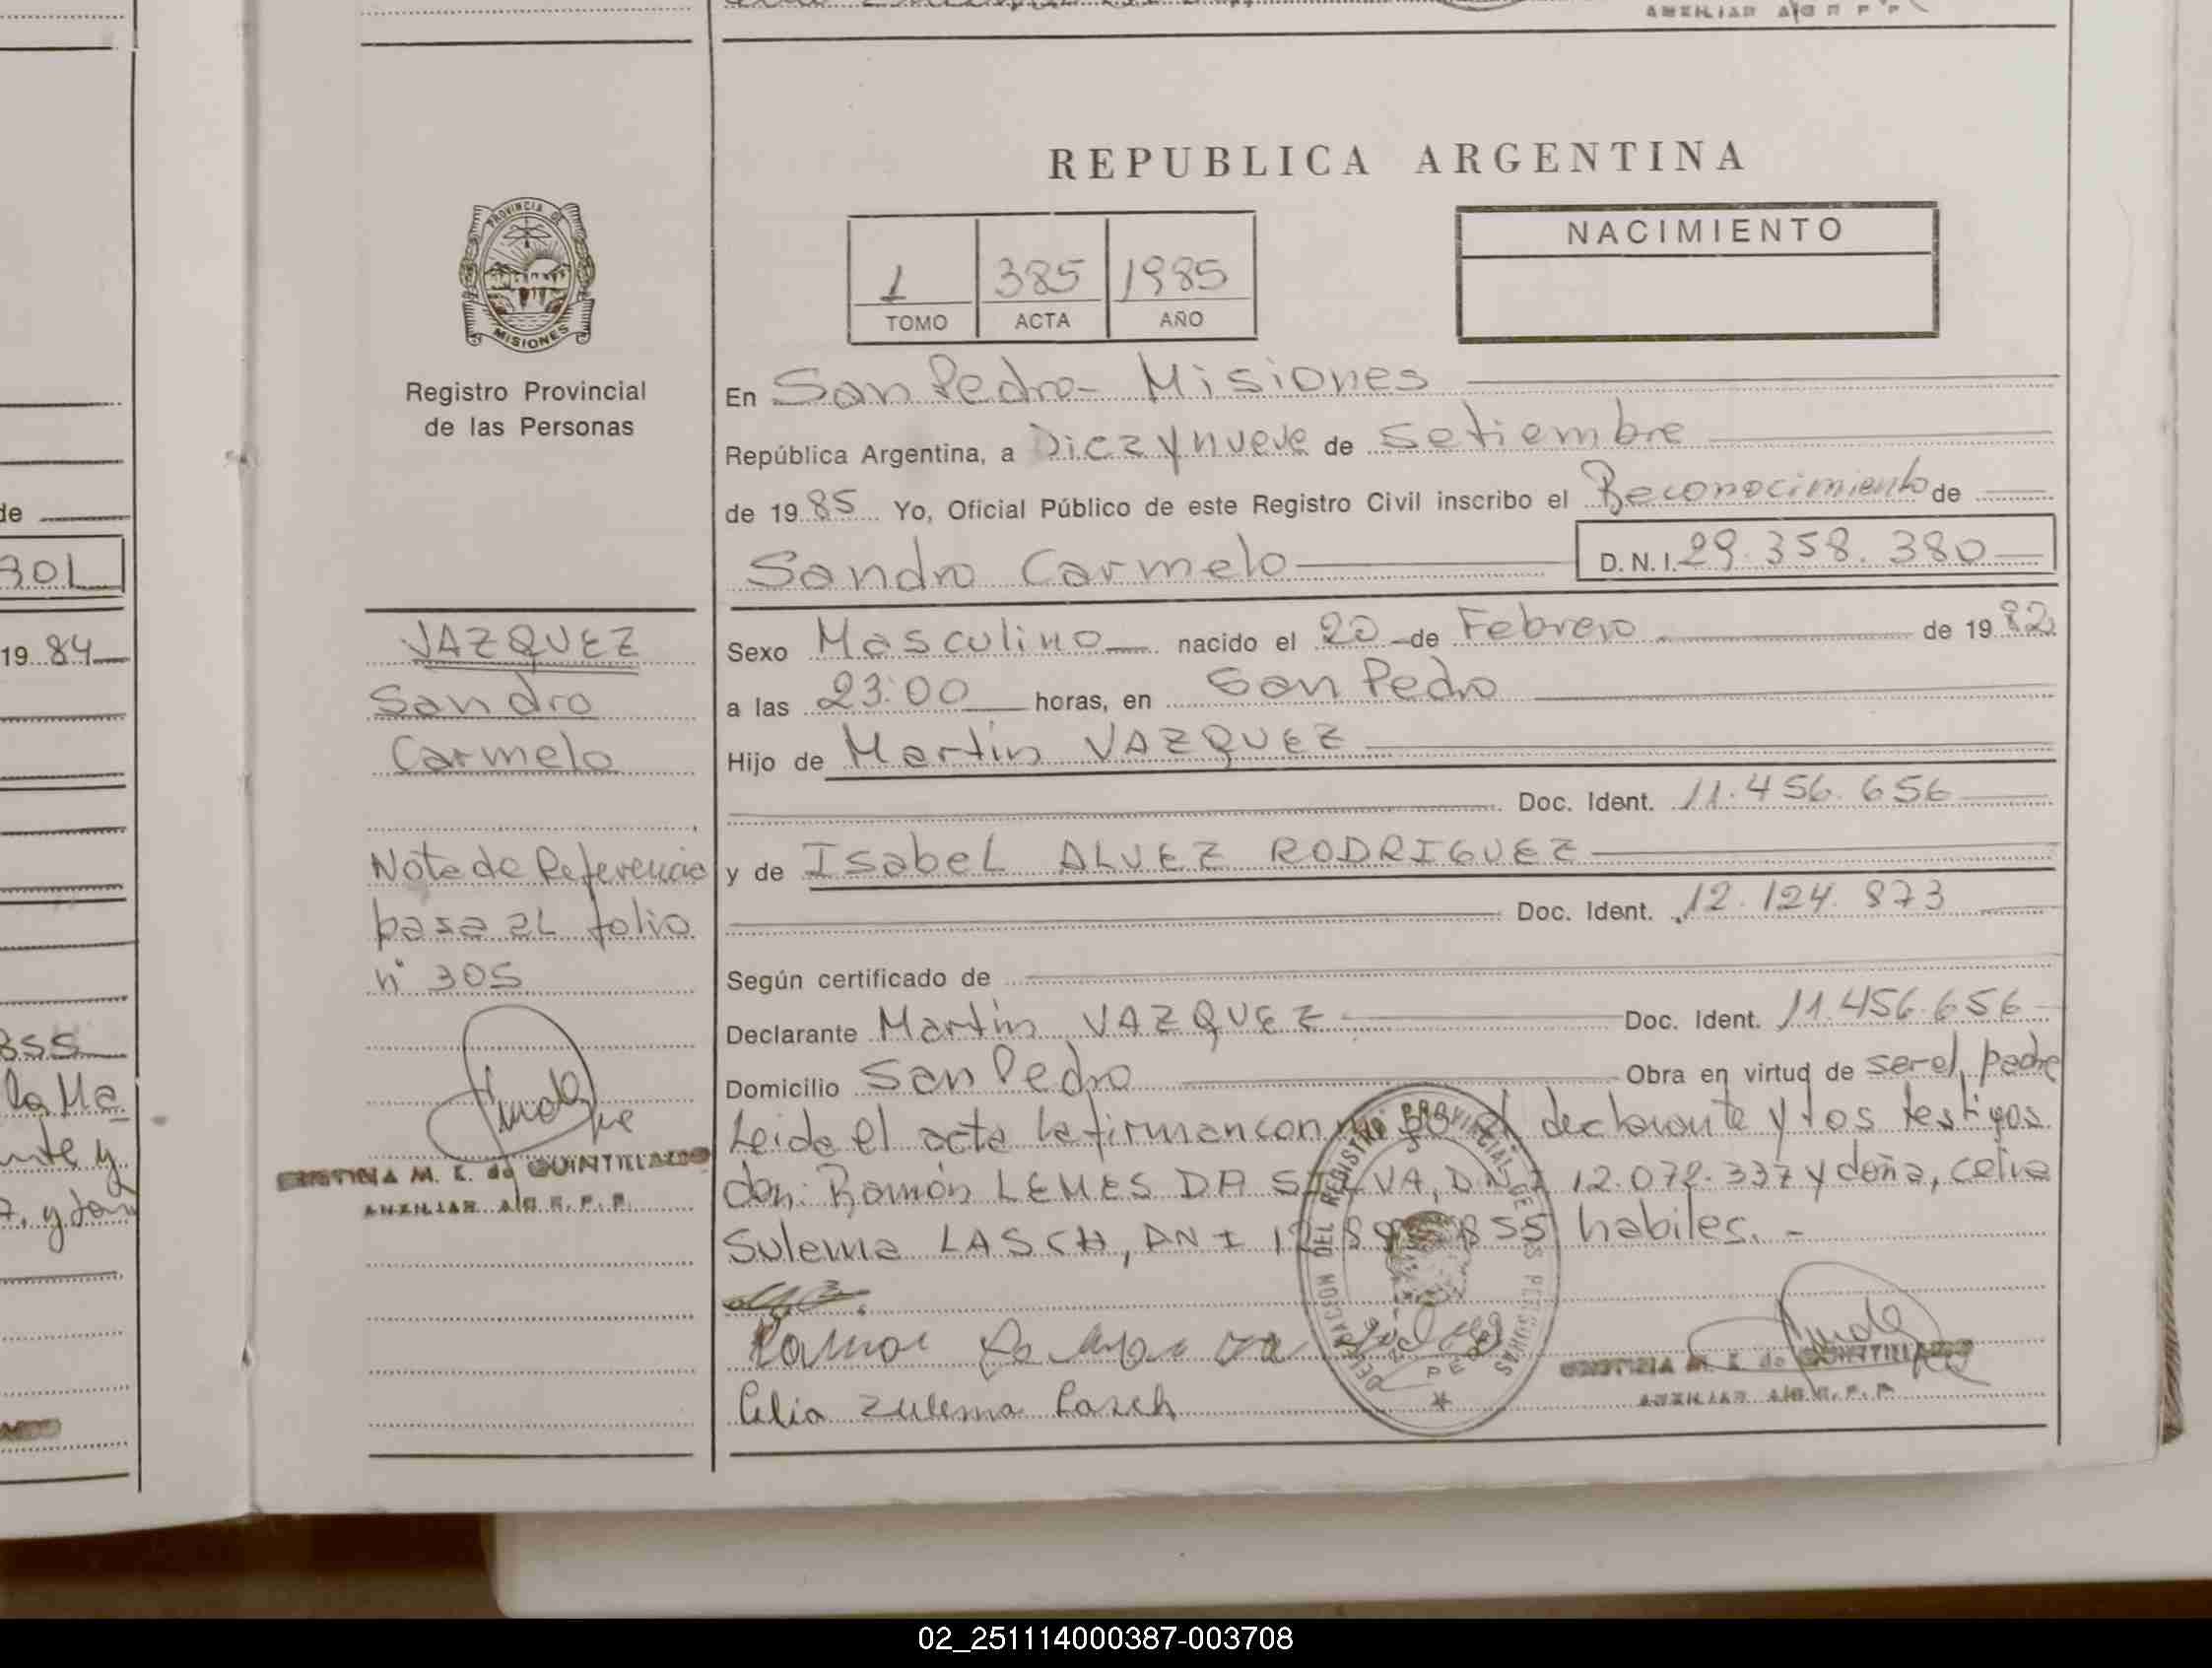 AUXILIAR A/C R. P. P.
REPUBLICA ARGENTINA
PROVINCIA DE
MISIONES
1 385 1985
TOMO ACTA AÑO
NACIMIENTO
Registro Provincial
de las Personas
En San Pedro- Misiones
República Argentina, a Diez y nueve de setiembre
de 1985 Yo, Oficial Público de este Registro Civil inscribo el Reconocimiento de
Sandro Carmelo D. N. I. 29.358.380
VAZQUEZ
Sandro
Carmelo
Nota de Referencia
pasa al folio
n° 305
CRISTINA M. K. de QUINTILLANO
AUXILIAR A/C R. P. P.
Sexo Masculino nacido el 20 de Febrero de 1982
a las 23:00 horas, en San Pedro
Hijo de Martin VAZQUEZ
Doc. Ident. 11.456.656
y de Isabel ALVEZ RODRIGUEZ
Doc. Ident. 12.124.873
Según certificado de
Declarante Martin VAZQUEZ Doc. Ident. 11.456.656
Domicilio San Pedro Obra en virtud de ser el padre
Leida el acta la firman con declarante y los testigos
don: Ramón LEMES DA SILVA, DNI 12.072.337 y doña, Celia
Sulema LASCH, DNI habiles. -
Ramon
Celia Zulema Lasch
DELEGACION DEL REGISTRO PROVINCIAL DE LAS PERSONAS
CRISTINA M. K. de QUINTILLANO
AUXILIAR A/C R. P. P.
de
301
1984
855
la Ma
nte y
7, y don
02_251114000387-003708